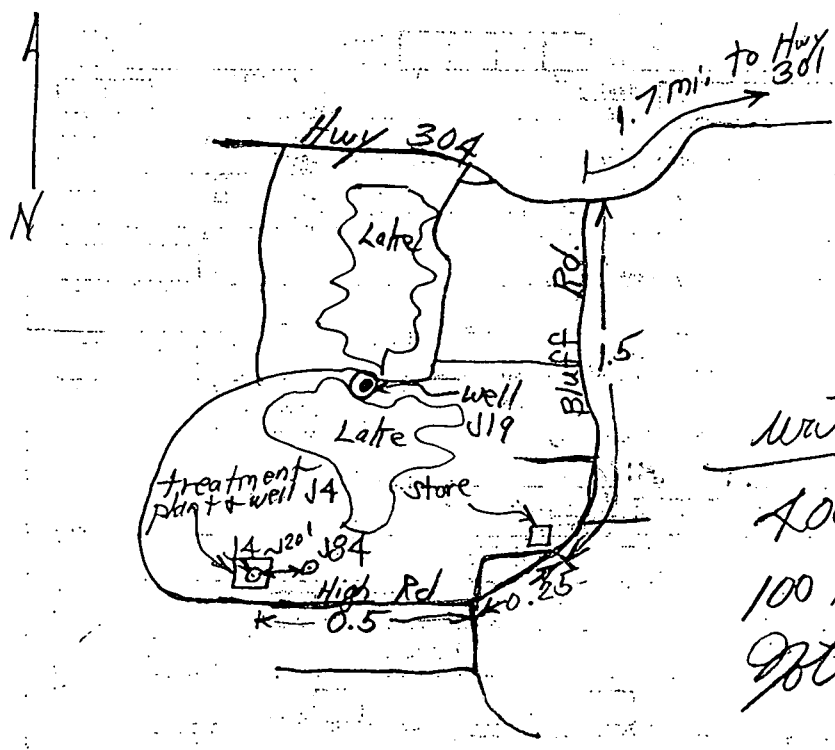 N
1.7 mi. to Hwy
301
Hwy 304
Lake
Bluff Rd.
1.5
well
J19
Lake
treatment
plant & well J4
store
J4 ~20' J84
High Rd
0.5
0.25
100